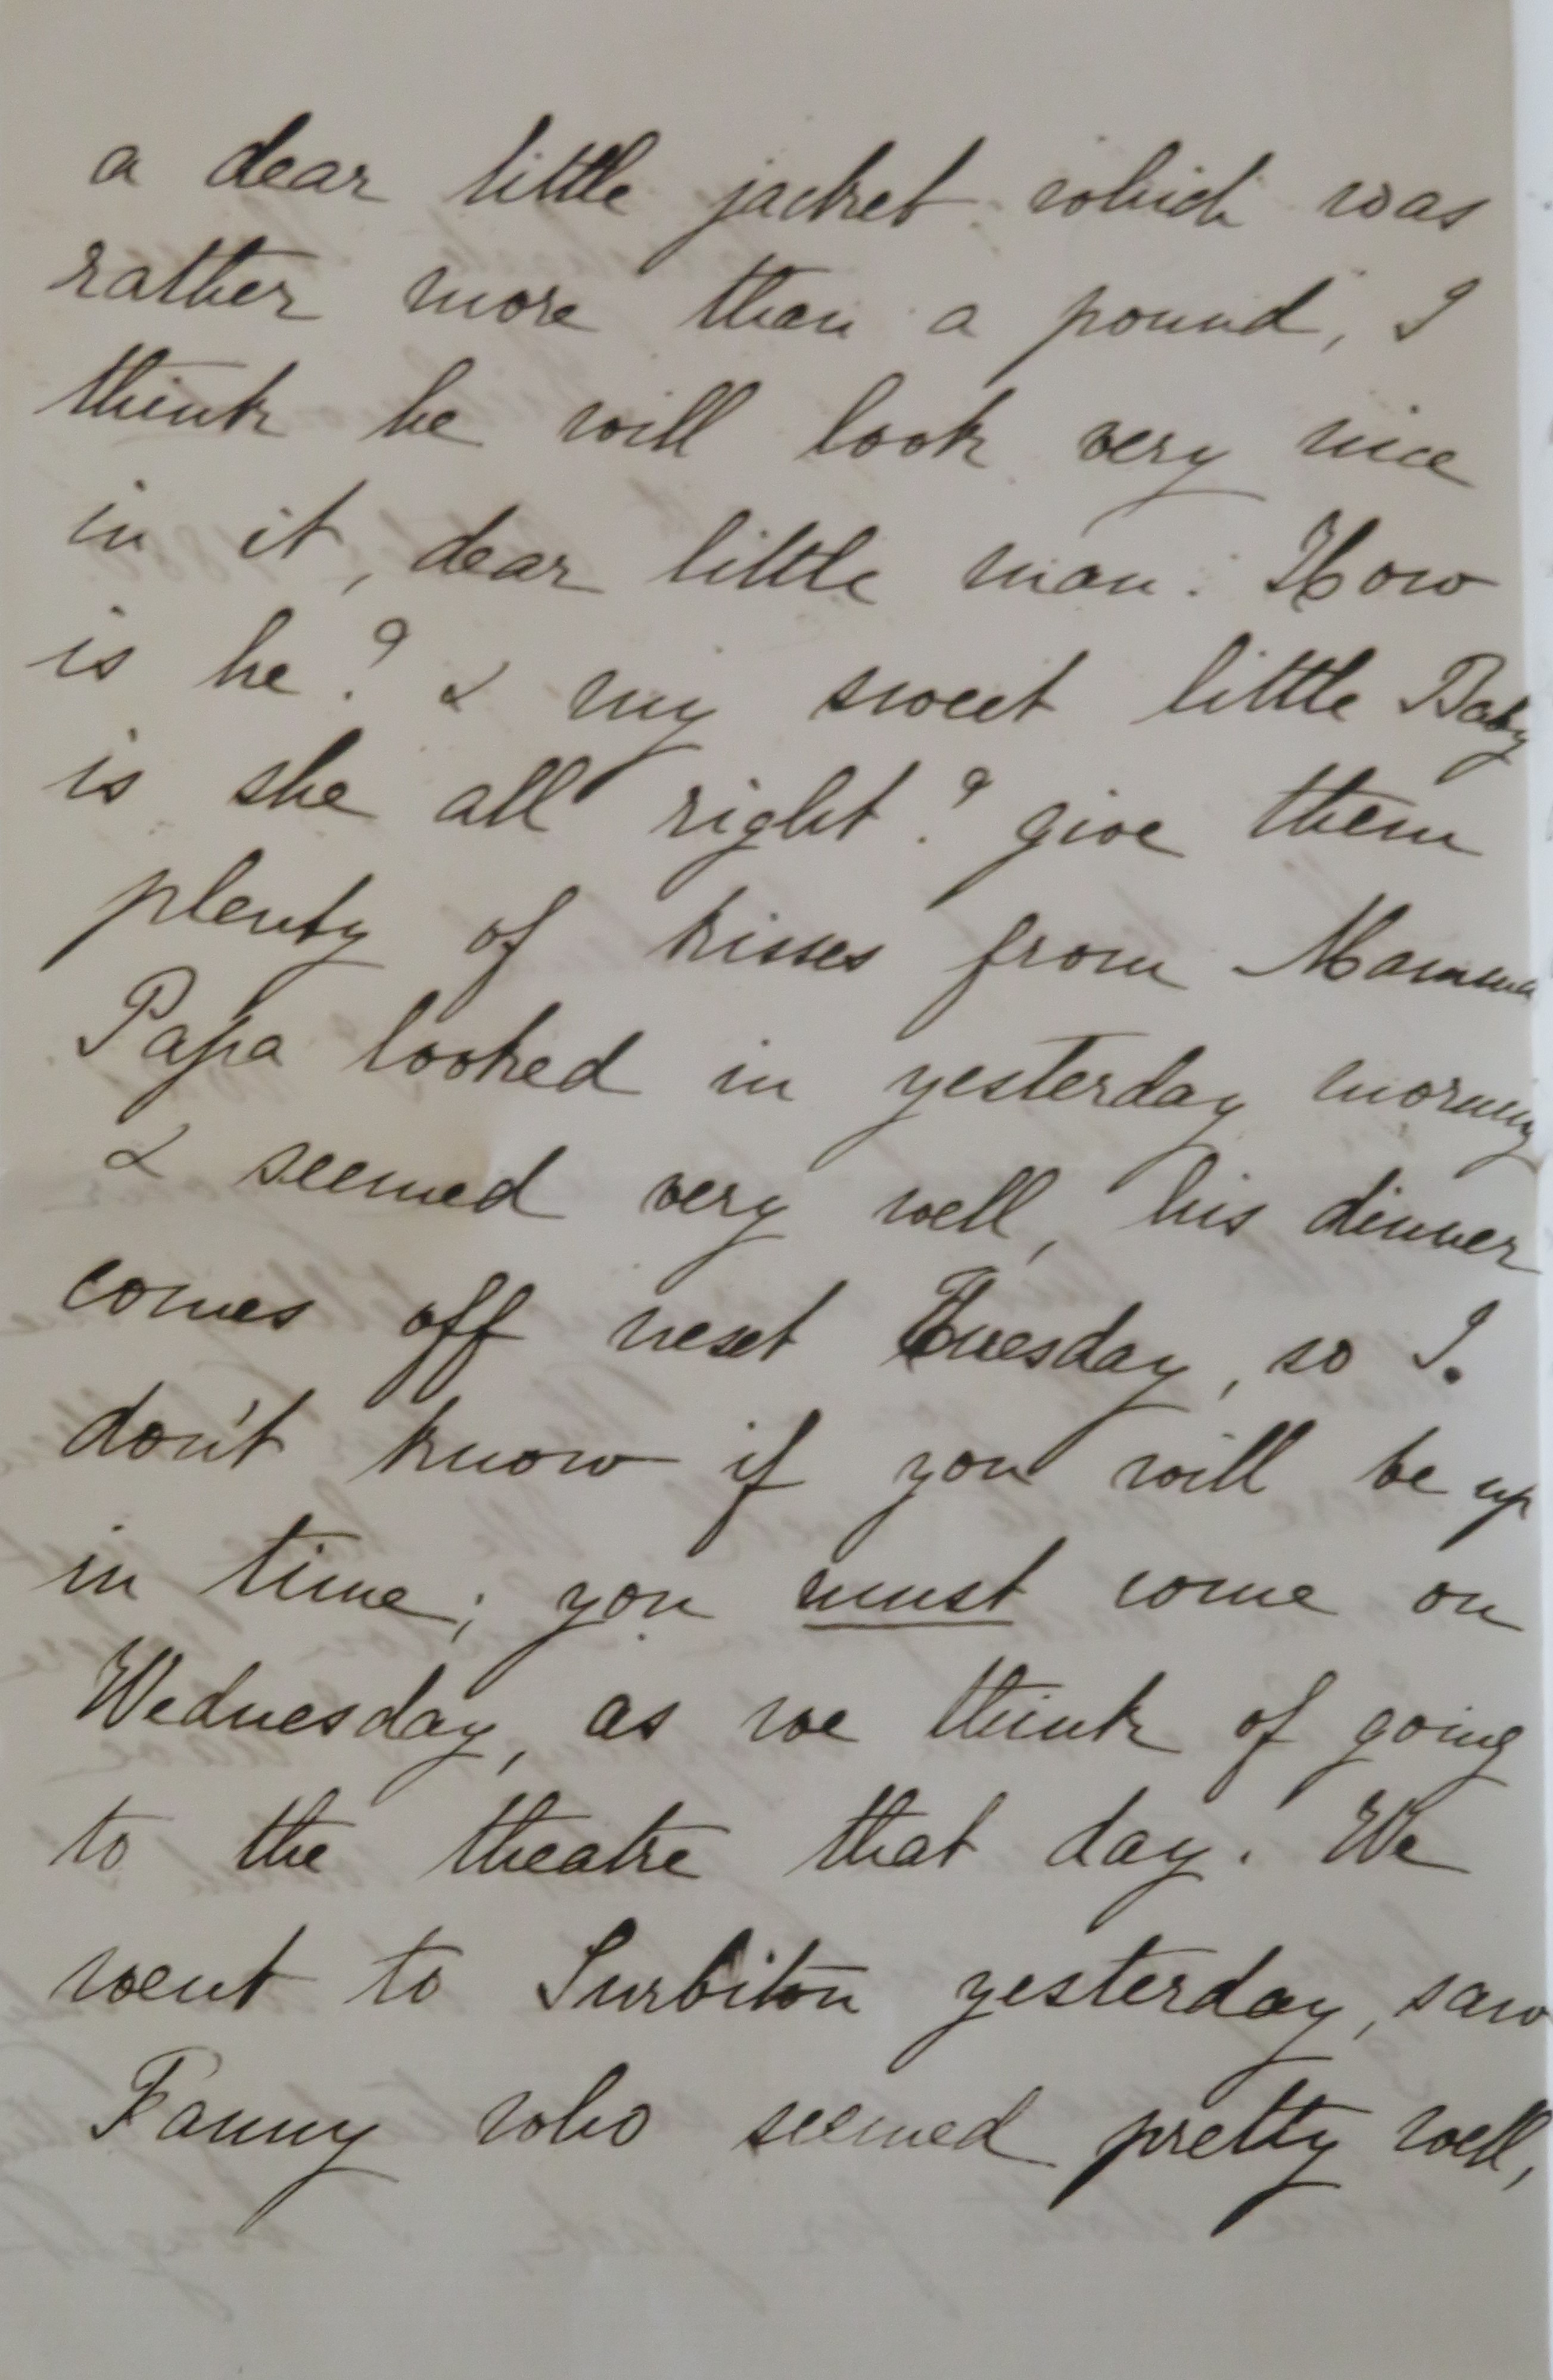 a dear little jacket which was
rather more than a pound, I
think he will look very nice
in it, dear little man. How
is he? & my sweet little Baby
is she all right? give them
plenty of kisses from Mamma
Papa looked in yesterday morning
& seemed very well, his dinner
comes off next Tuesday, so I.
don't know if you will be up
in time; you must come on
Wednesday, as we think of going
to the theatre that day. We
went to Surbiton yesterday, saw
Fanny who seemed pretty well,